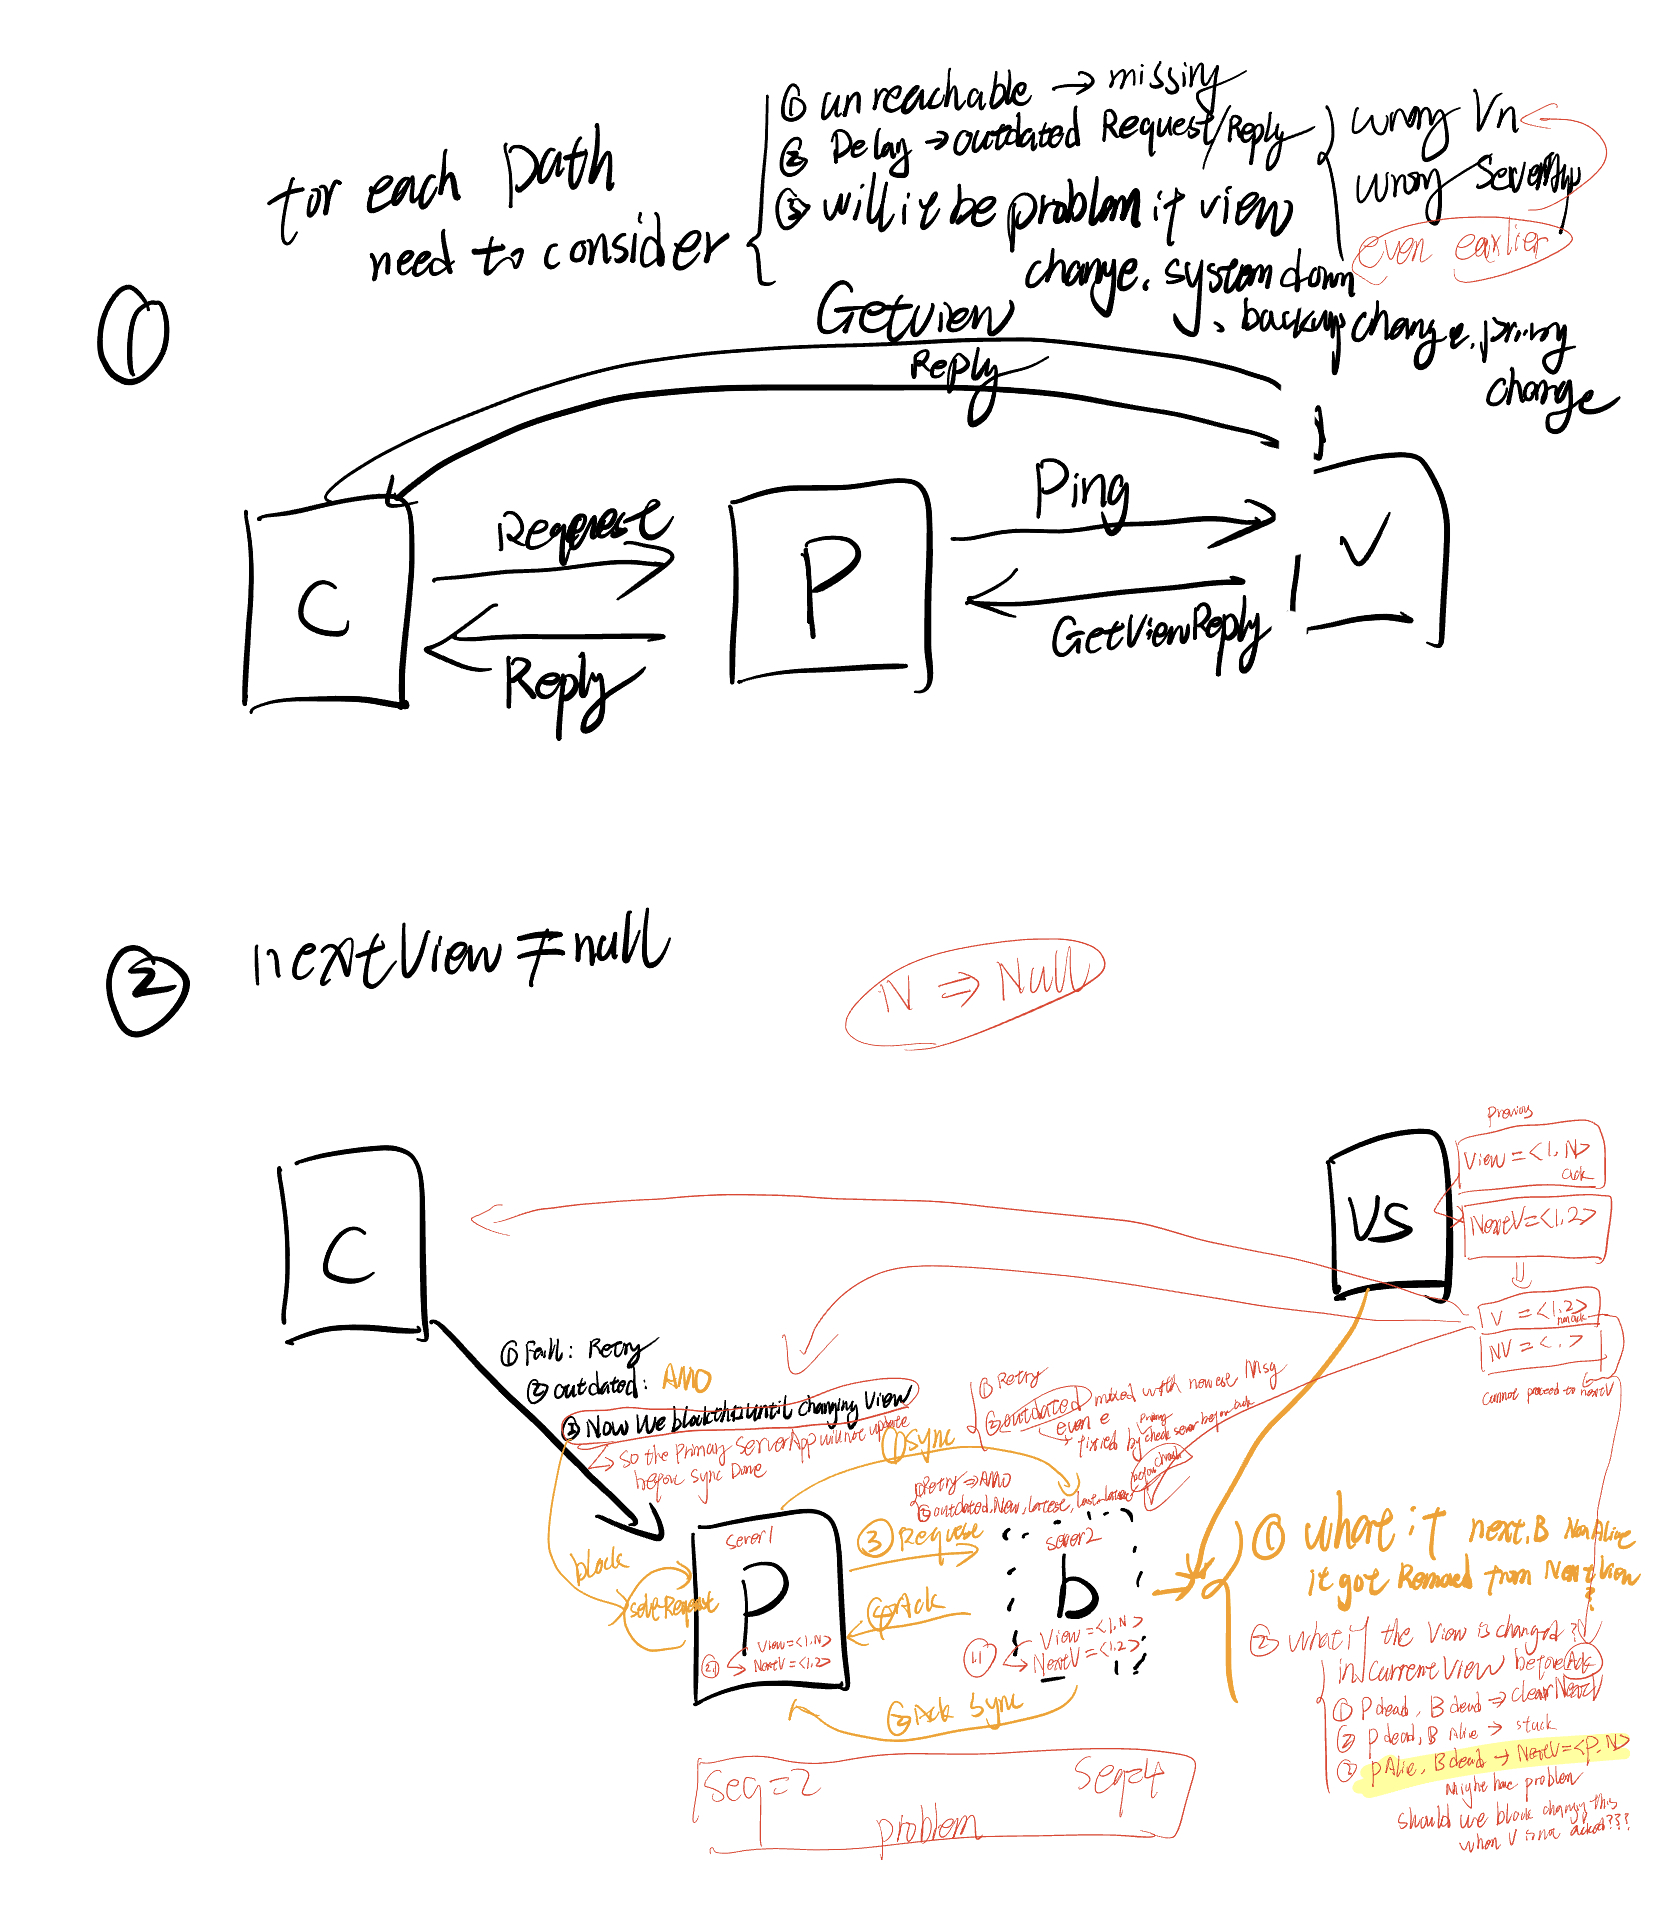 for each path
need to consider
① unreachable → missing
② Delay → outdated Request/Reply
③ will it be problem if view
change, system down
, backup change, primary
change
wrong Vn
wrong
even earlier
①
Getview
Reply
C
Request
Reply
P
Ping
GetViewReply
V
② nextView ≠ null
N ⇒ Null
C
VS
Previous
View = <1, N>
ack
NextV = <1, 2>
V = <1, 2>
non ack
NV = < , >
Cannot proceed to nextV
① Fail: Retry
② outdated: AMO
③ Now We block this until changing View
→ so the Primary ServerApp will not update
before sync Done
① sync
① Retry
② outdated mixed with newest Msg
even e
→ fixed by check server before ack
① Retry ⇒ AMO
② outdated, New, latest,
before crash
block
self-Request
③ Request
④ Ack
② Ack Sync
server1
P
View = <1, N>
→ NextV = <1, 2>
server2
b
1.1
View = <1, N>
→ NextV = <1, 2>
① what if next.B Non Alive
it got Removed from NextView
?
② what if the View is changed?
in currentView before Ack
① P dead, B dead → clear NextV
② P dead, B Alive → stuck
P Alive, B dead → NextV = <P, N>
Might have problem
should we block changing this
when V is not acked????
seq=2
seq=4
problem